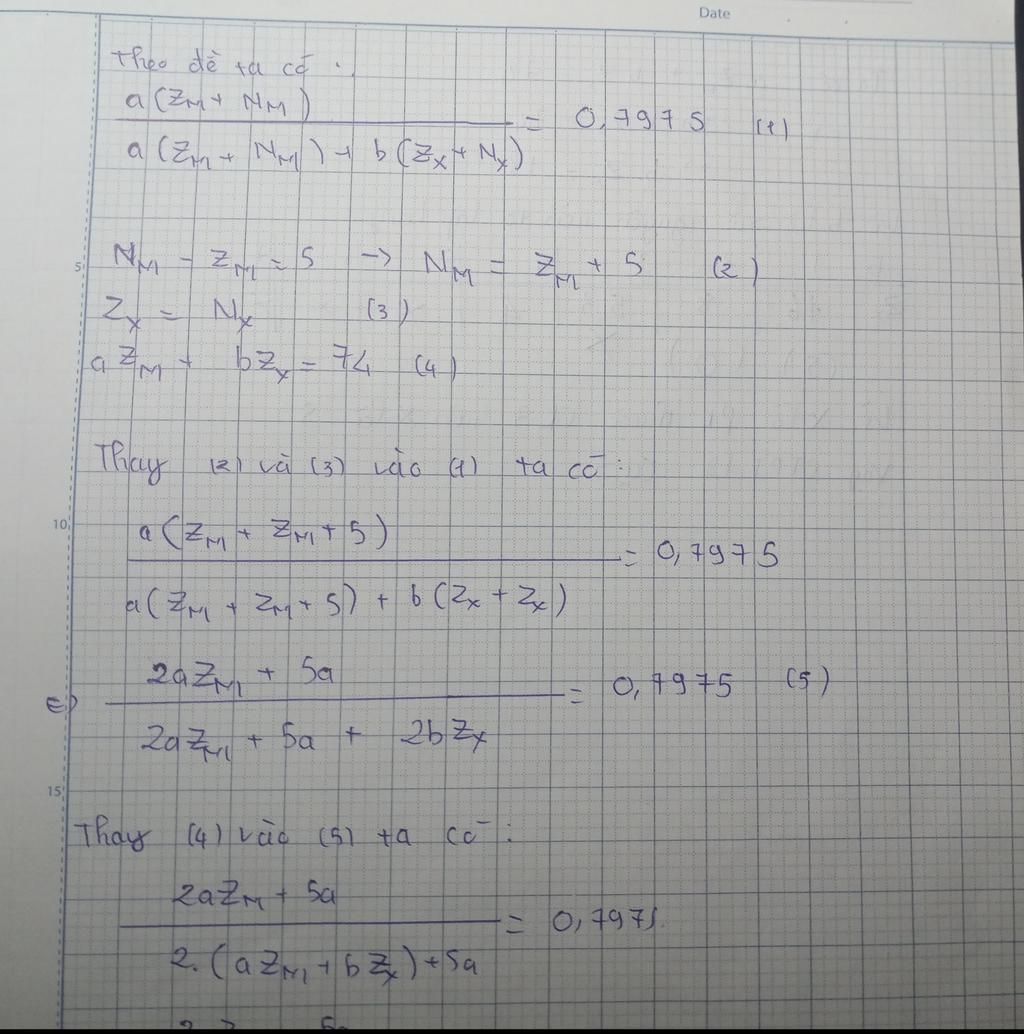 Date
Theo đề ta có:
a(Z_M + N_M) / a(Z_M + N_M) + b(Z_X + N_X) = 0,7975 (1)
5
N_M - Z_M = 5 -> N_M = Z_M + 5 (2)
Z_X = N_X (3)
aZ_M + bZ_X = 74 (4)
Thay (2) và (3) vào (1) ta có:
10
a(Z_M + Z_M + 5) / a(Z_M + Z_M + 5) + b(Z_X + Z_X) = 0,7975
⇔ 2aZ_M + 5a / 2aZ_M + 5a + 2bZ_X = 0,7975 (5)
15
Thay (4) vào (5) ta có:
2aZ_M + 5a / 2.(aZ_M + bZ_X) + 5a = 0,7975